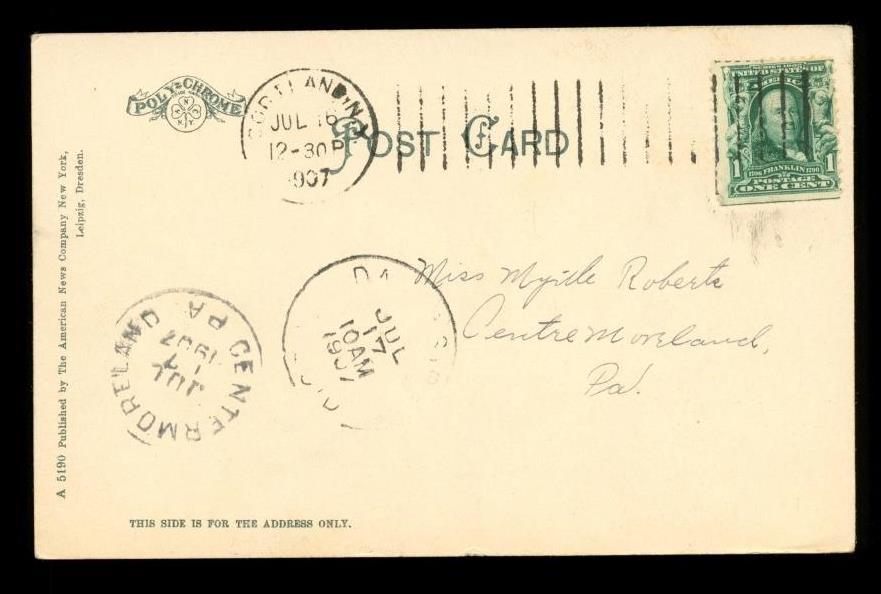 POLY-CHROME
CORTLAND, N.Y.
JUL 16
12-30 P
1907
POST CARD
SERIES 1902
UNITED STATES OF
AMERICA
1 1
1706 FRANKLIN 1790
POSTAGE
ONE CENT
A 5190 Published by The American News Company New York,
Leipzig, Dresden.
Miss Myrtle Roberts
Centre Moreland,
Pa.
PA
JUL
17
10 AM
1907
CENTERMORELAND
PA
JUL
1907
THIS SIDE IS FOR THE ADDRESS ONLY.